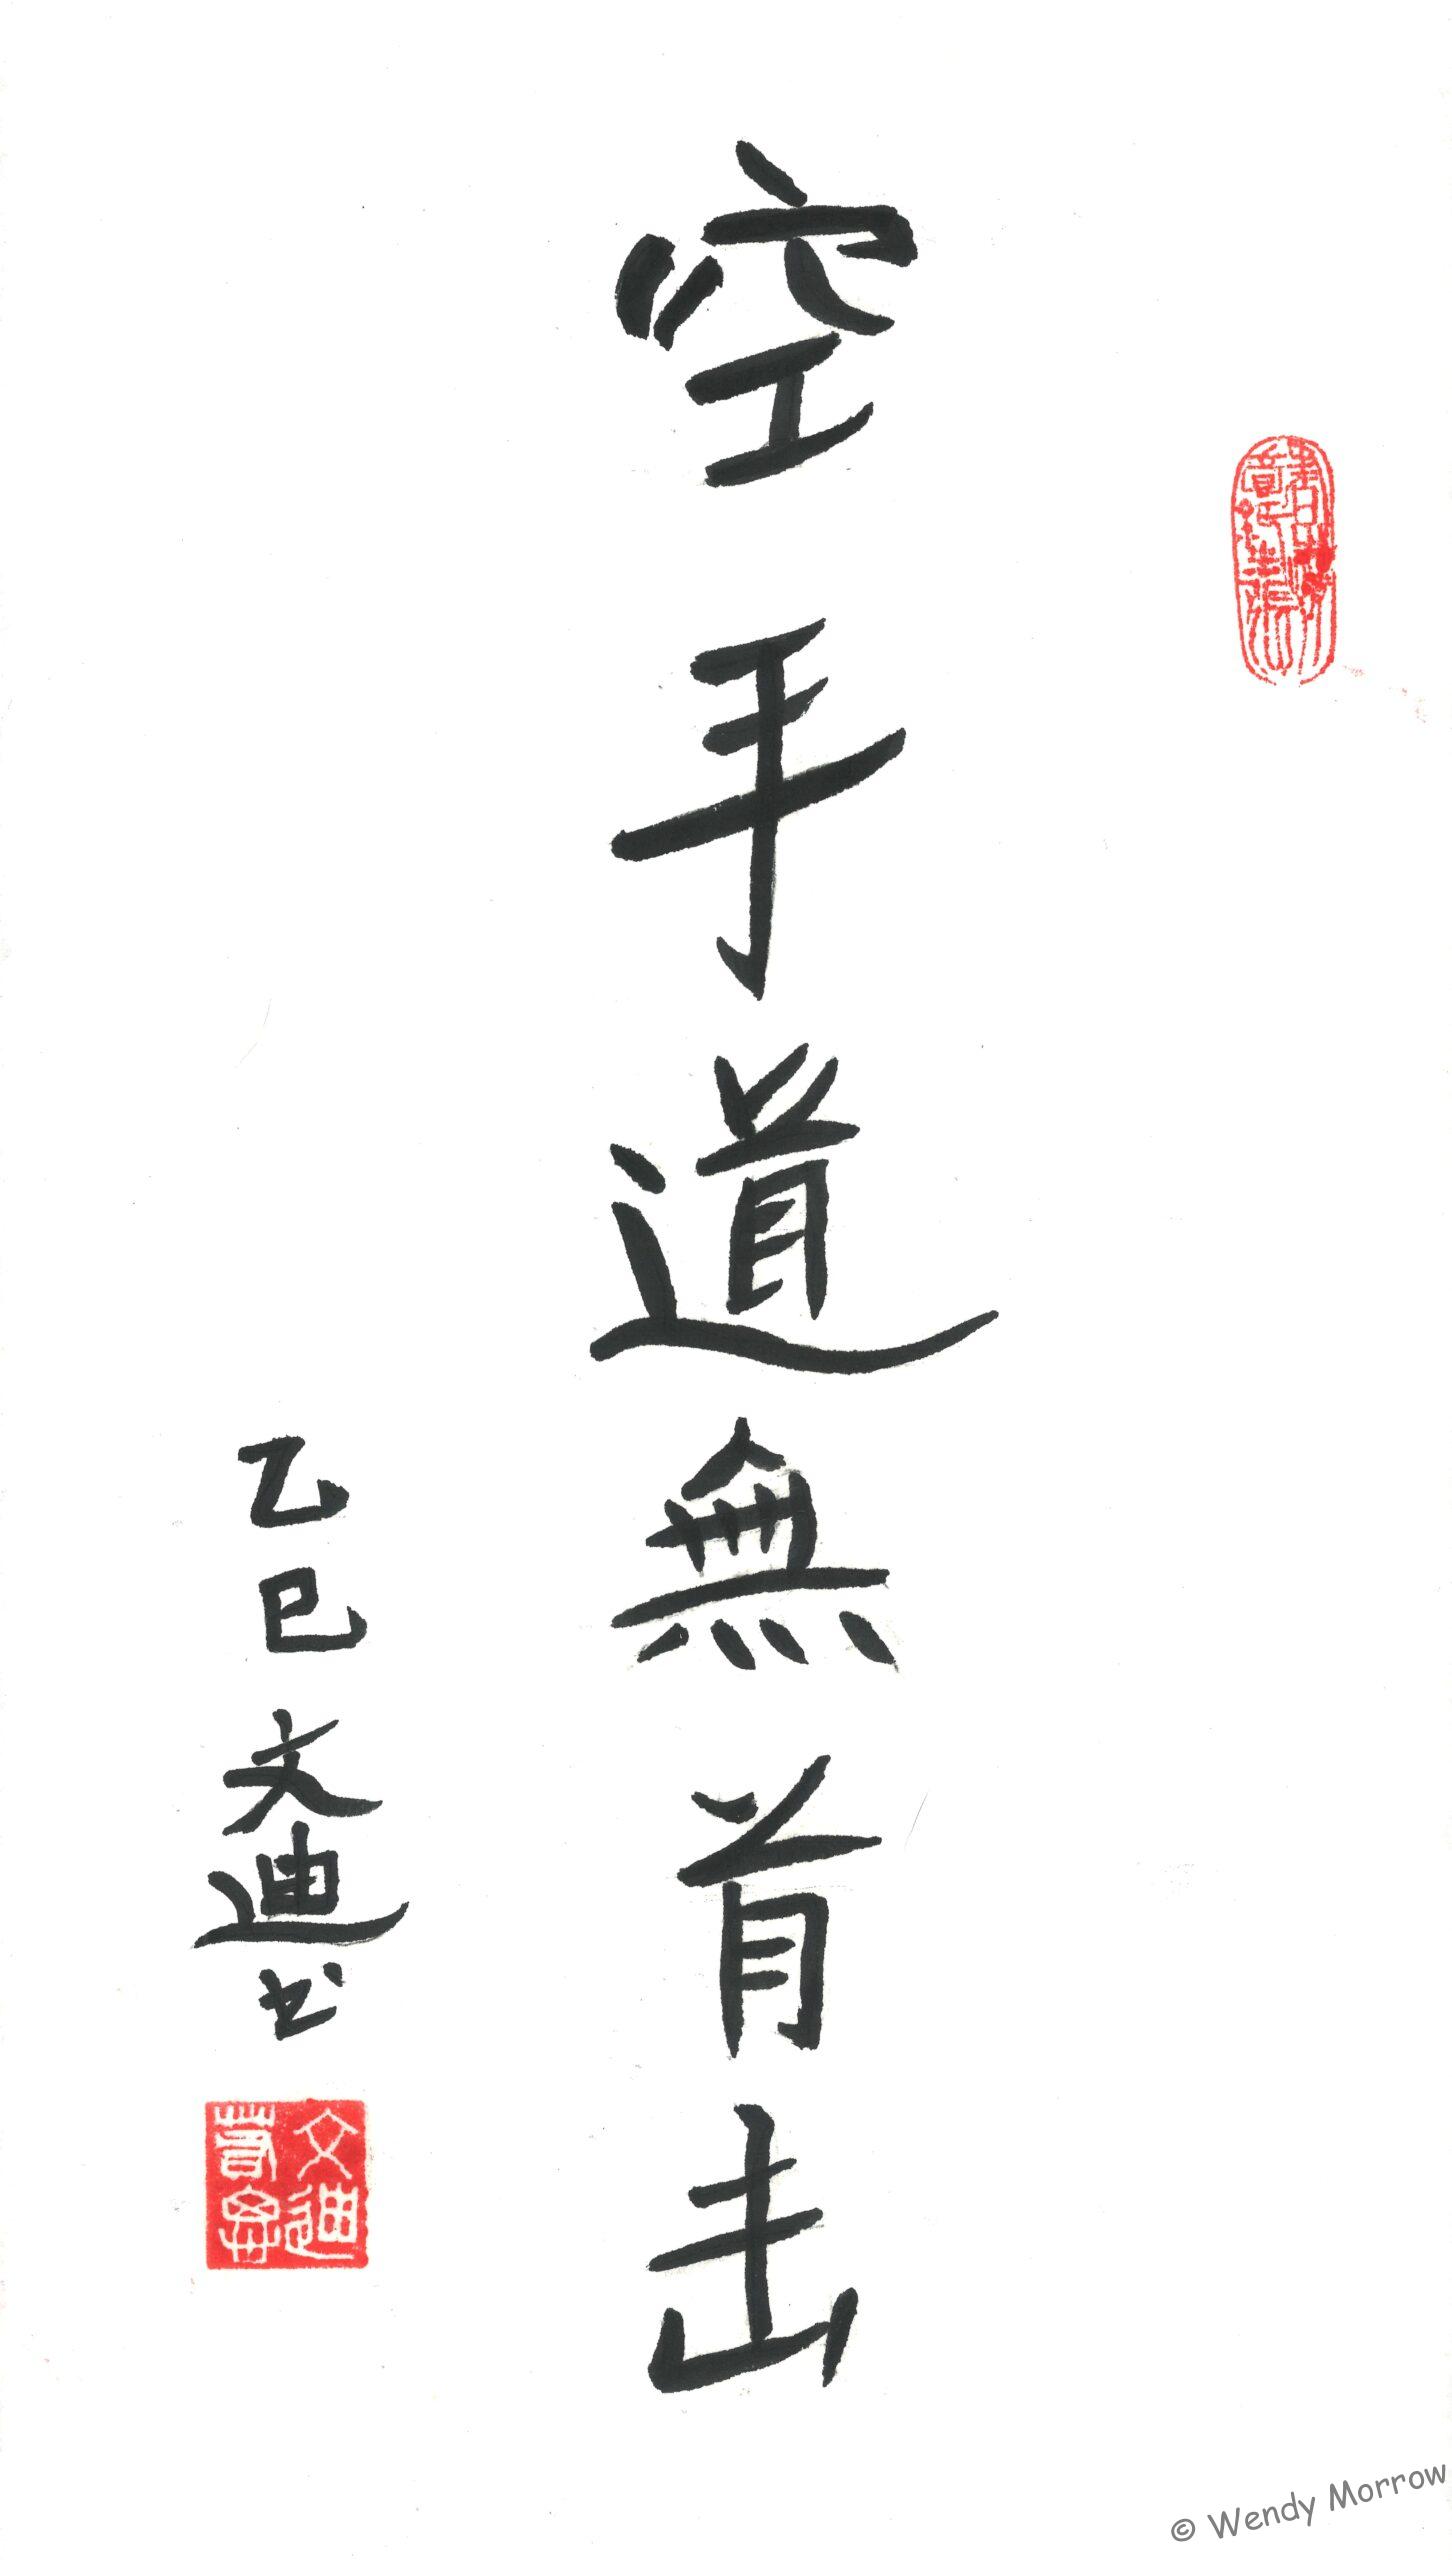 空手道無首击
乙巳文迪书
文迪
© Wendy Morrow